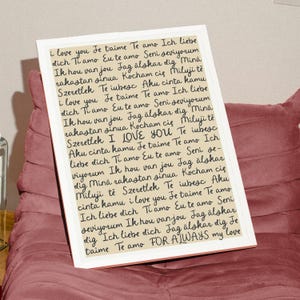 i love you Je taime Ti amo Ich liebe
dich Ti amo Eu te amo Seni seviyorum
Ik hou van jou Jag älskar dig Mina
rakastan sinua Kocham cię Miluji tě
Szeretlek Te iubesc Aku cinta kamu
i love you Je taime Ti amo Ich liebe
dich Ti amo Eu te amo Seni seviyorum
Ik hou van jou Jag älskar dig Mina
rakastan sinua Kocham cię Miluji tě
Szeretlek I LOVE YOU Te iubesc
Aku cinta kamu Je taime Ti amo Ich
liebe dich Ti amo Eu te amo Seni se-
viyorum Ik hou van jou Jag älskar
dig Mina rakastan sinua Kocham cię
Miluji tě Szeretlek Te iubesc Aku
cinta kamu i love you Je taime Ti amo
Ich liebe dich Ti amo Eu te amo Seni
seviyorum Ik hou van jou Jag älskar
dig Ich liebe dich Eu te amo Je
taime Te amo FOR ALWAYS my love